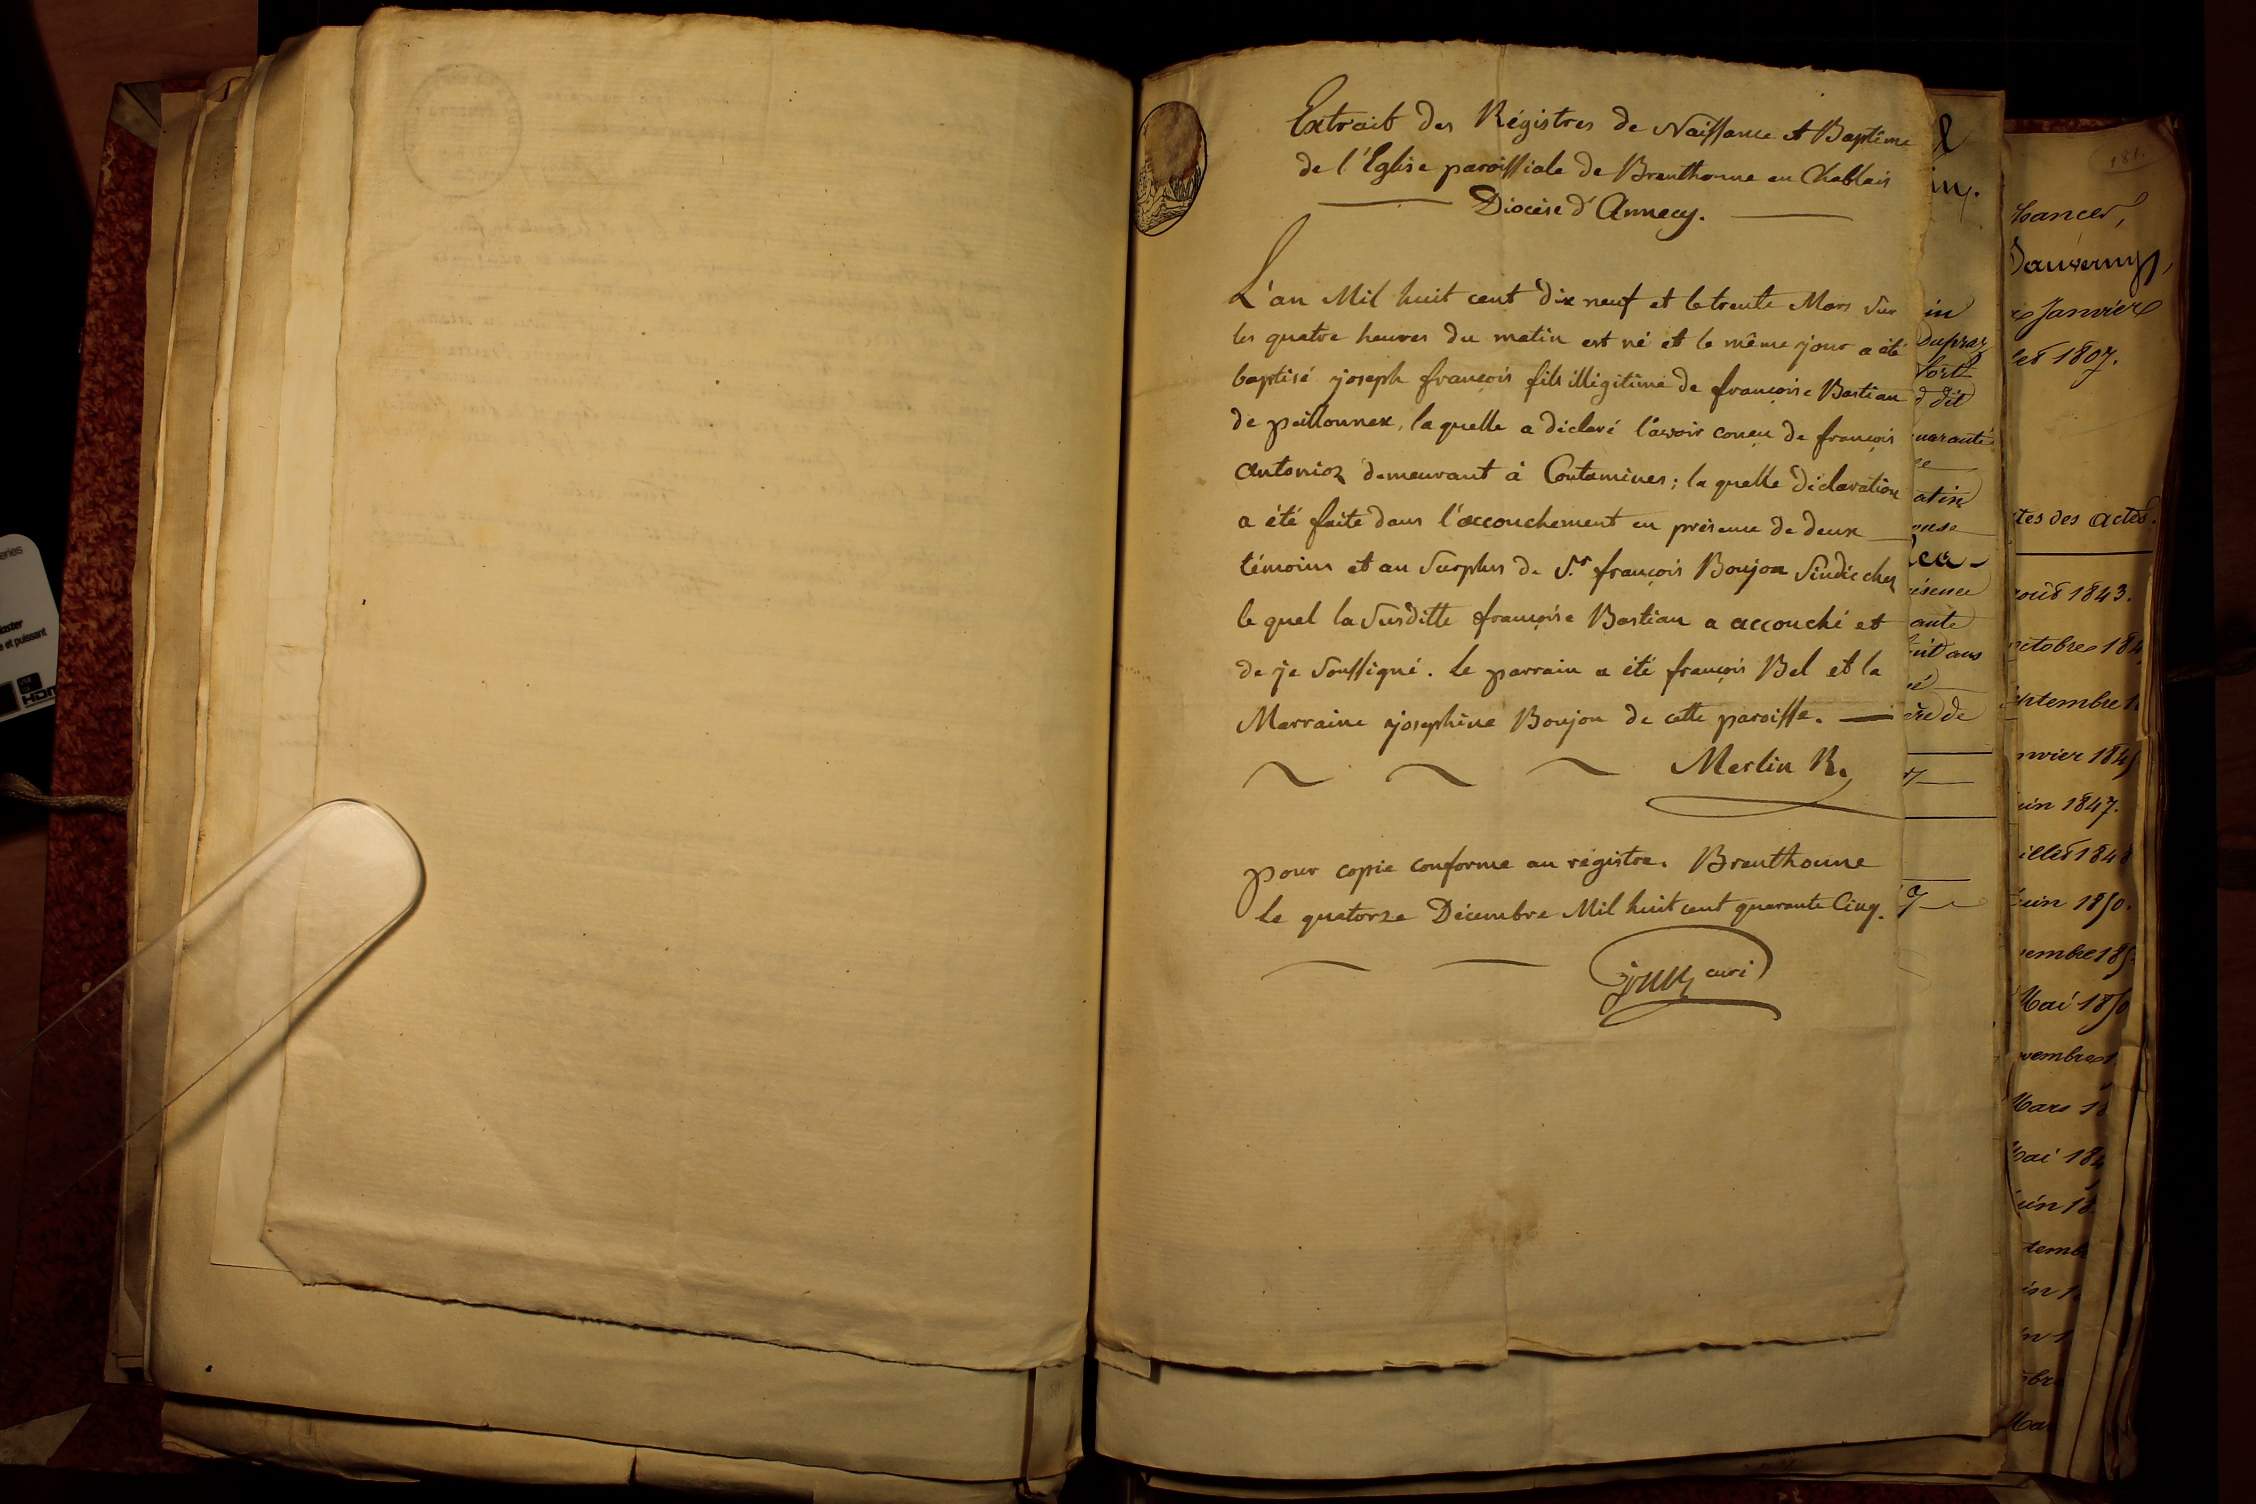 Extrait des Régistres de Naissance et Baptême
de l'Eglise paroissiale de Brenthonne en Chablais
Diocèse d'Annecy.
L'an Mil huit cent dix neuf et le trente Mars sur
les quatre heures du matin est né et le même jour a été
baptisé joseph françois fils illégitime de françoise Bastian
de peillonnex, la quelle a déclaré l'avoir conçu de françois
Antonioz demeurant à Contamines ; la quelle déclaration
a été faite dans l'accouchement en présence de deux
témoins et au surplus de S.r françois Boujon sindic chez
le quel la susditte françoise Bastian a accouché et
de je soussigné. Le parrain a été françois Bel et la
Marraine joséphine Boujon de cette paroisse.
Merlin R.
pour copie conforme au régistre. Brenthonne
le quatorze Décembre Mil huit cent quarante Cinq.
curé
181.
Janvier
1807.
des actes.
1843.
octobre 184
1847.
1848
1850.
Mai 1850
Mars